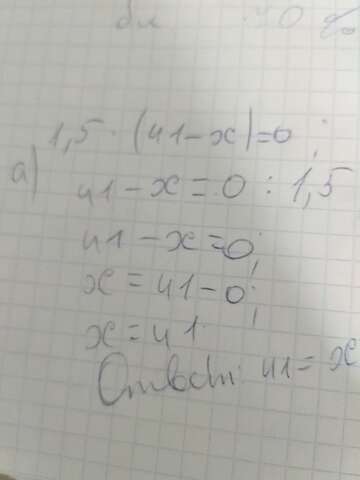 1,5 · (41-x)=0;
а) 41-x=0:1,5
41-x=0;
x=41-0;
x=41
Ответ: 41=x